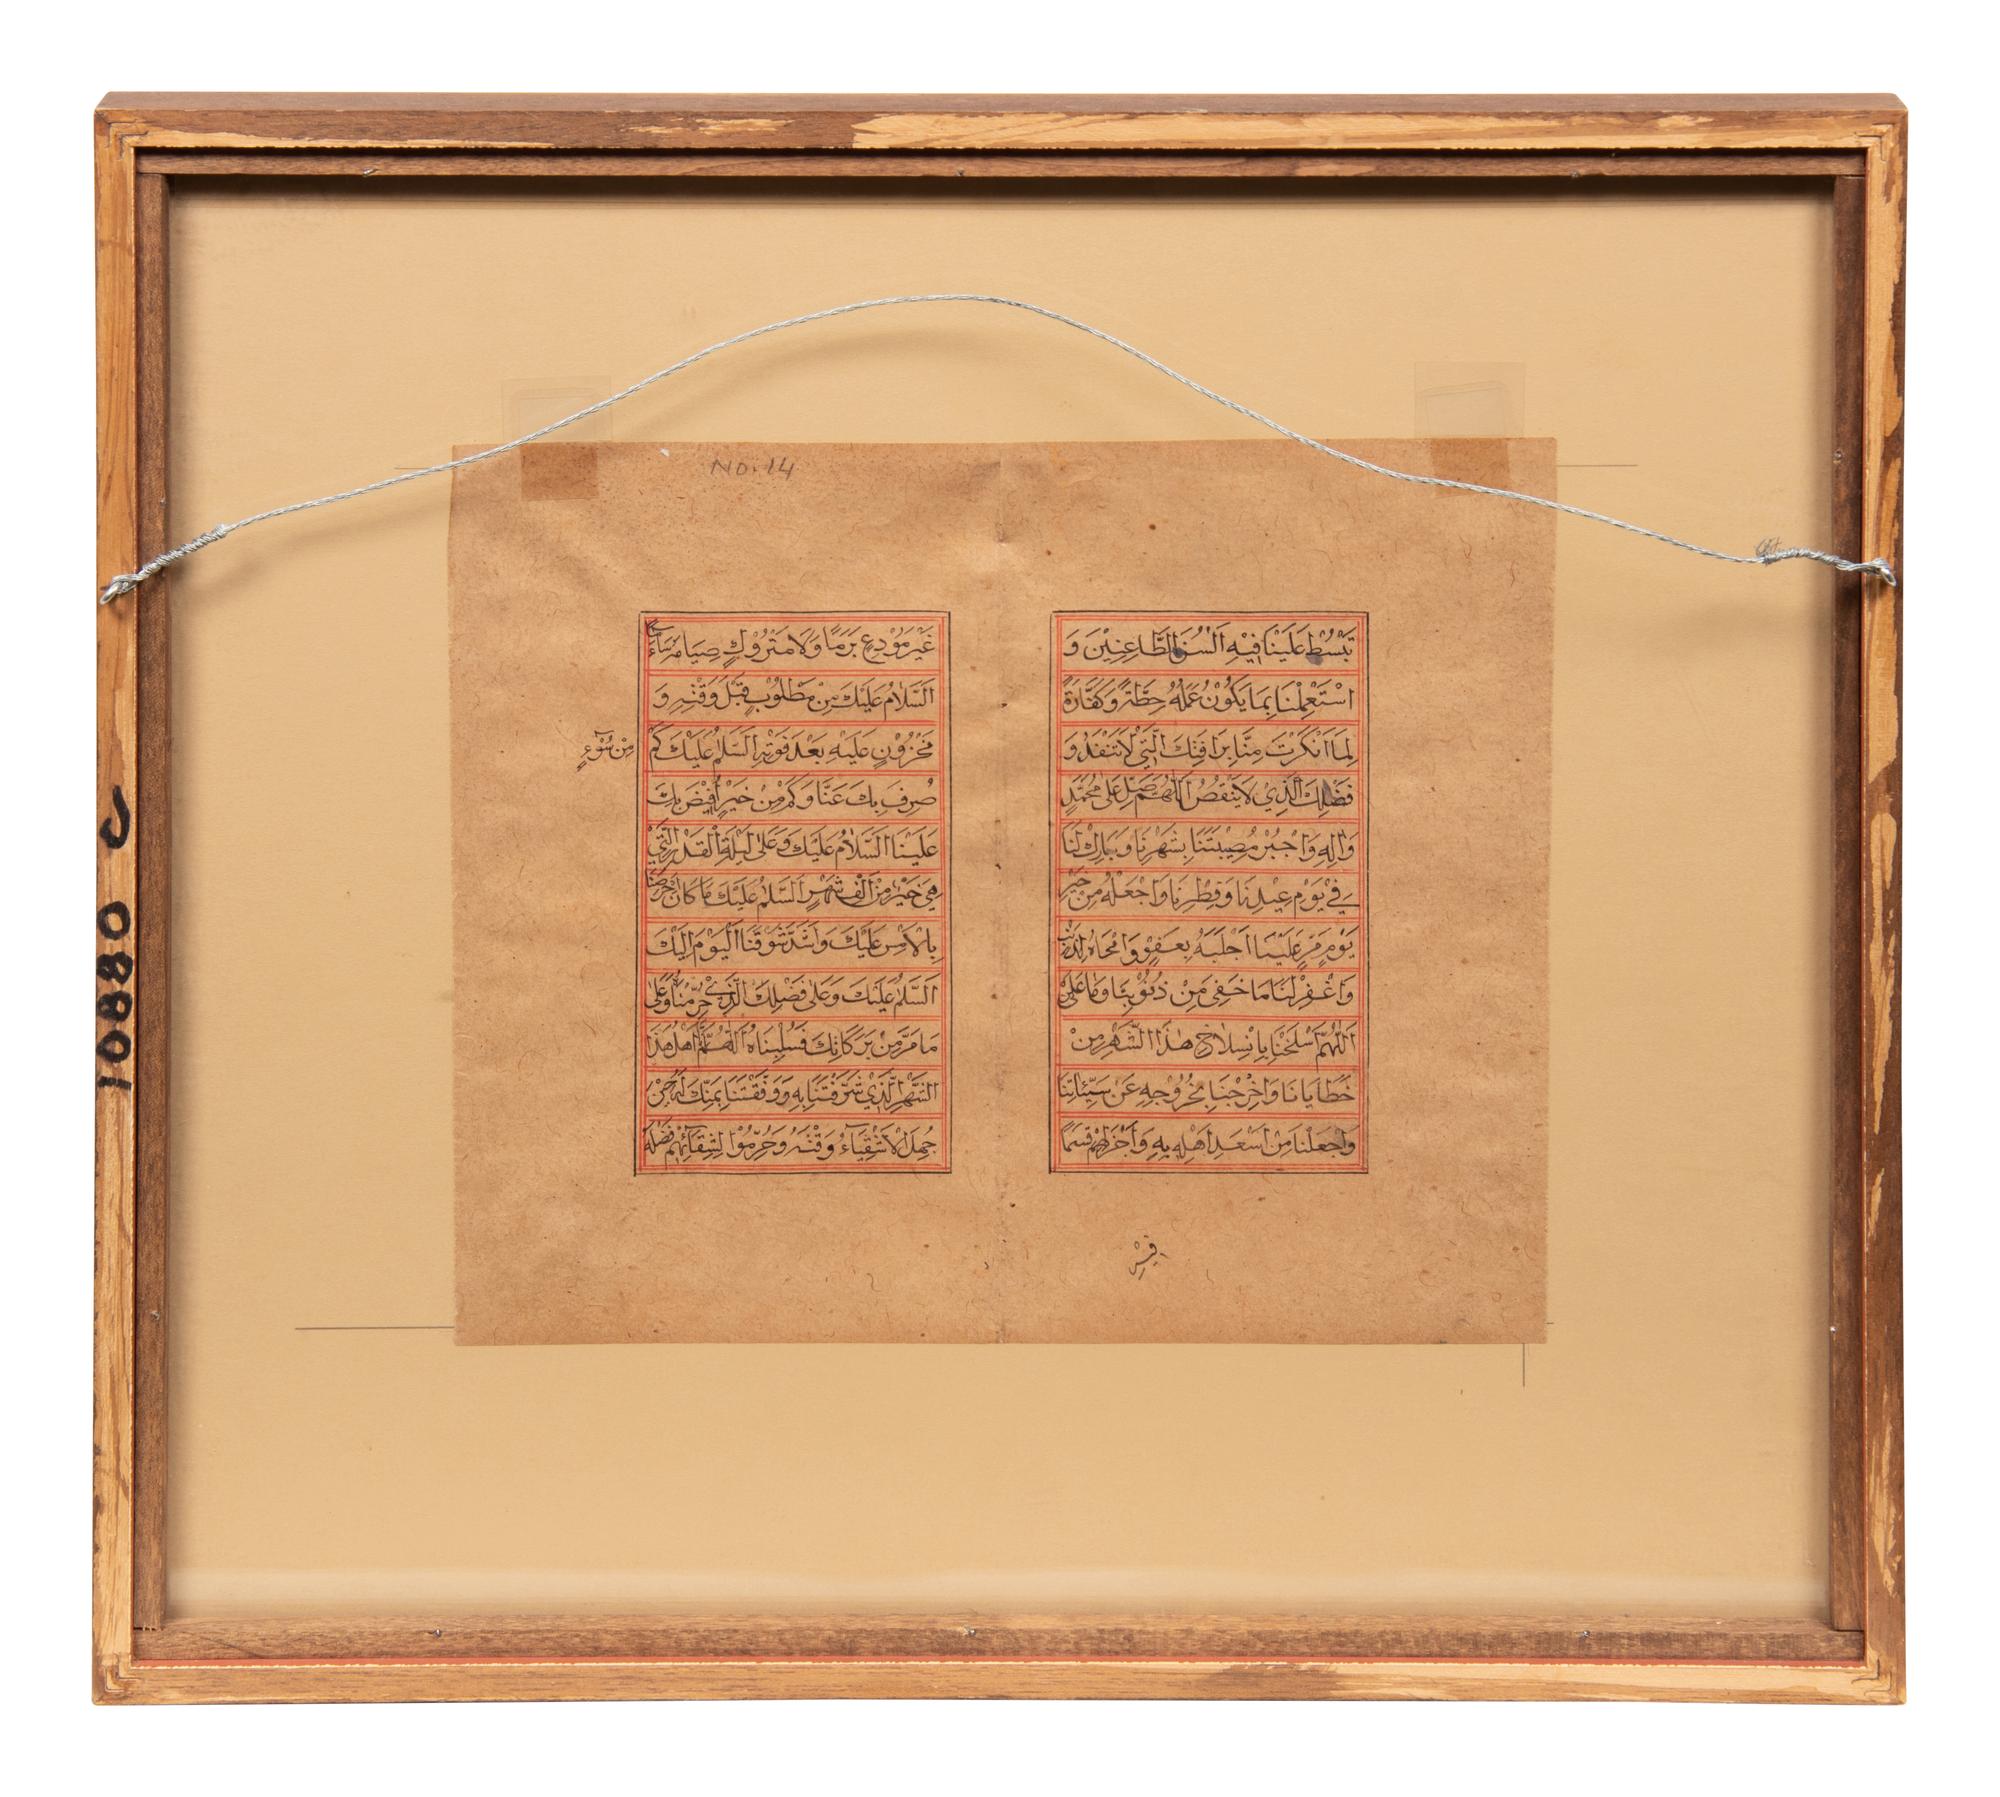 NO. 14
تَبْسُطْ عَلَيْنَا فِيْهِ اَلْسُنَ الطَّاعِنِيْنَ وَ
اسْتَعْمِلْنَا بِمَا يَكُوْنُ عَمَلُهُ حِطَّةً وَكَفَّارَةً
لِمَا اَنْكَرْتَ مِنَّا بِرَافَتِكَ الَّتِيْ لَاتَنْفَدُ وَ
فَضْلِكَ الَّذِيْ لَا يَنْقُصُ اَللّٰهُمَّ صَلِّ عَلٰى مُحَمَّدٍ
وَاٰلِهٖ وَاجْبُرْ مُصِيْبَتَنَا بِشَهْرِنَا وَ بَارِكْ لَنَا
فِيْ يَوْمِ عِيْدِنَا وَفِطْرِنَا وَاجْعَلْهُ مِنْ خَيْرِ
يَوْمٍ مَرَّ عَلَيْنَا اَجْلَبَهُ بِعَفْوٍ وَاَمْحَاهُ لِذَنْبٍ
وَاغْفِرْلَنَا مَا خَفِىَ مِنْ ذُنُوْبِنَا وَمَا عَلَنَ
اَللّٰهُمَّ اسْلَخْنَا بِانْسِلَاخِ هٰذَا الشَّهْرِ مِنْ
خَطَايَانَا وَاخْرِجْنَا بِخُرُوْجِهِ عَنْ سَيِّئَاتِنَا
وَاجْعَلْنَا مِنْ اَسْعَدِ اَهْلِهِ بِهٖ وَاَجْزَلِهِمْ قِسَمًا
غَيْرَ مُوَدَّعٍ بَرَمًا وَلَا مَتْرُوْكٍ صِيَامُهُ سَاَمًا
اَلسَّلَامُ عَلَيْكَ مِنْ مَطْلُوْبٍ قَبْلَ وَقْتِهِ وَ
مَحْزُوْنٍ عَلَيْهِ بَعْدَ فَوْتِهِ اَلسَّلَامُ عَلَيْكَ كَمْ
مِنْ سُوْٓءٍ
صُرِفَ بِكَ عَنَّا وَكَمْ مِنْ خَيْرٍ اُفِيْضَ بِكَ
عَلَيْنَا اَلسَّلَامُ عَلَيْكَ وَعَلٰى لَيْلَةِ الْقَدْرِ الَّتِيْ
هِىَ خَيْرٌ مِنْ اَلْفِ شَهْرٍ اَلسَّلٰمُ عَلَيْكَ مَا كَانَ اَحْرَصَنَا
بِالْاَمْسِ عَلَيْكَ وَاَشَدَّ شَوْقَنَا الْيَوْمَ اِلَيْكَ
اَلسَّلٰمُ عَلَيْكَ وَعَلٰى فَضْلِكَ الَّذِيْ حُرِّمْنَاهُ وَعَلٰى
مَا مَرَّ مِنْ بَرَكَاتِكَ فَسُلِبْنَاهُ اَللّٰهُمَّ اِنَّا اَهْلُ هٰذَا
الشَّهْرِ الَّذِيْ شَرَّفْتَنَا بِهٖ وَوَفَّقْتَنَا بِمَنِّكَ لَهُ حِيْنَ
جَهِلَ الْاَشْقِيَآءُ وَقْتَهُ وَحُرِّمُوْا لِشِقَآئِهِمْ فَضْلَهُ
10880 U